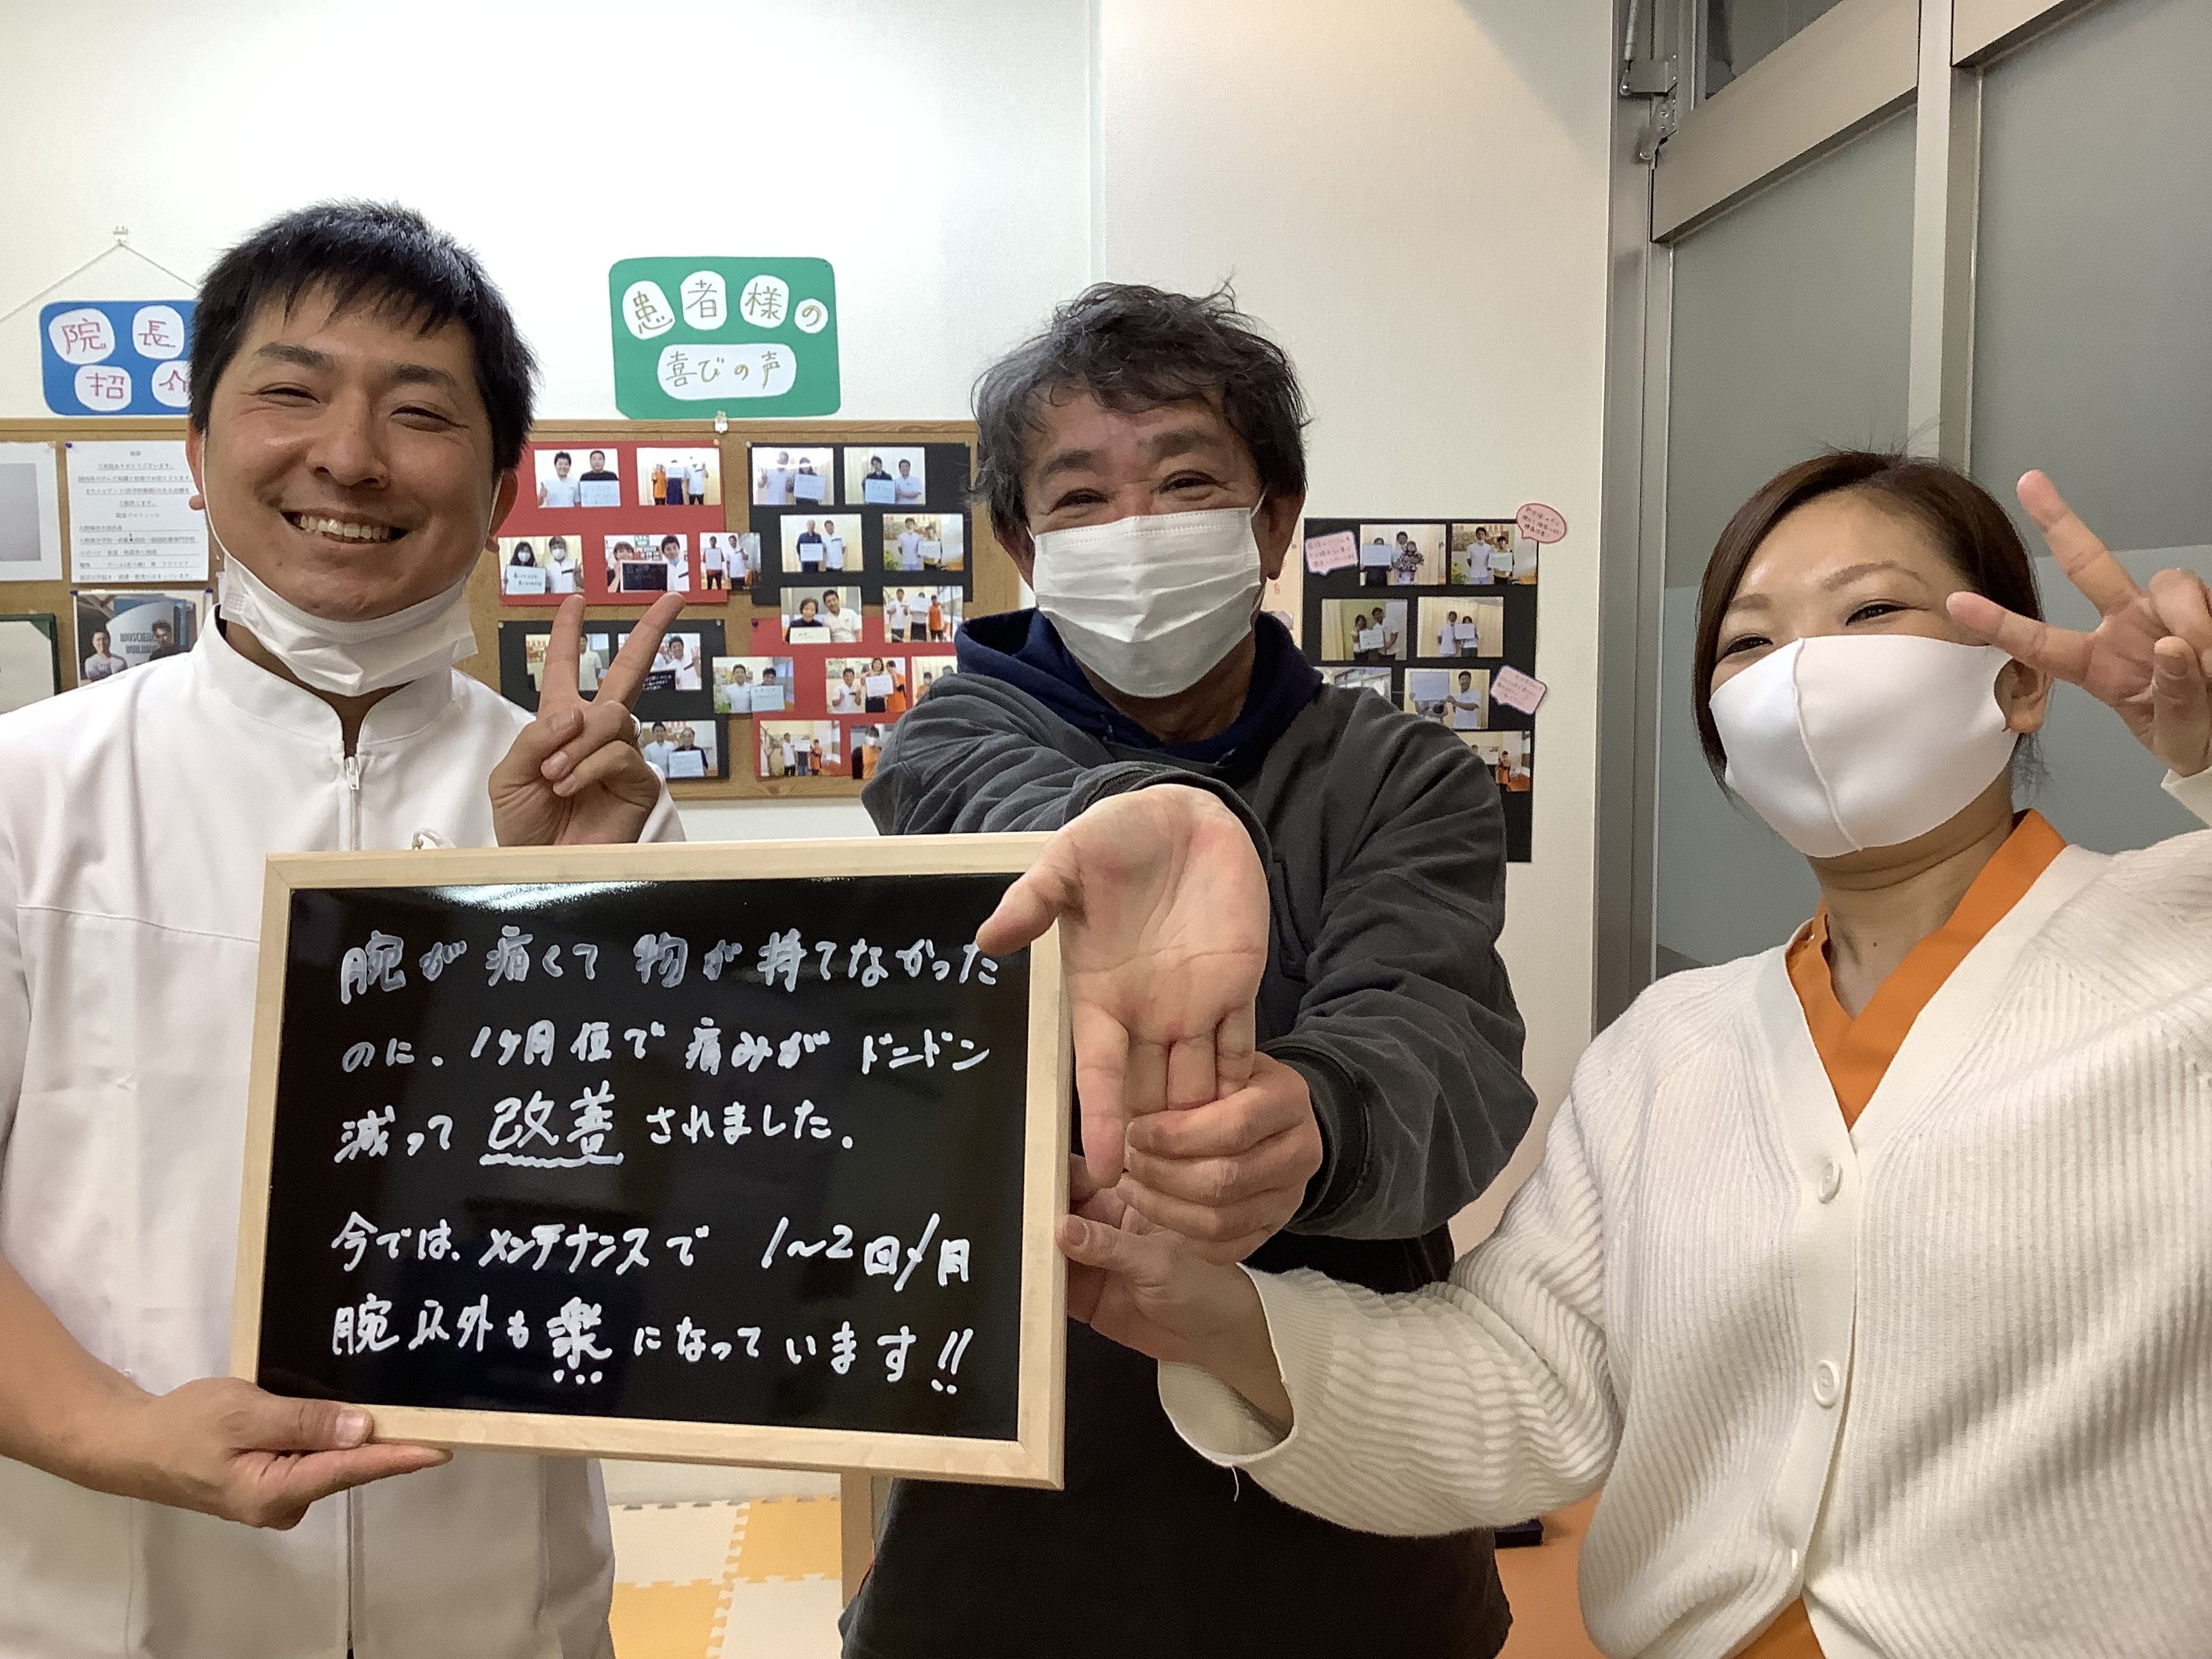 院長
招介
患者様の
喜びの声
腕が痛くて物が持てなかった
のに、1ヶ月位で痛みがドンドン
減って改善されました。
今では、メンテナンスで 1〜2回/月
腕以外も楽になっています!!